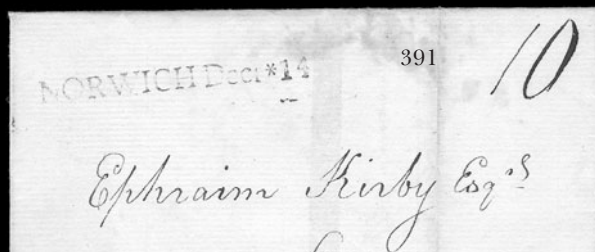 NORWICH Decr*14
391
10
Ephraim Kirby Esqr